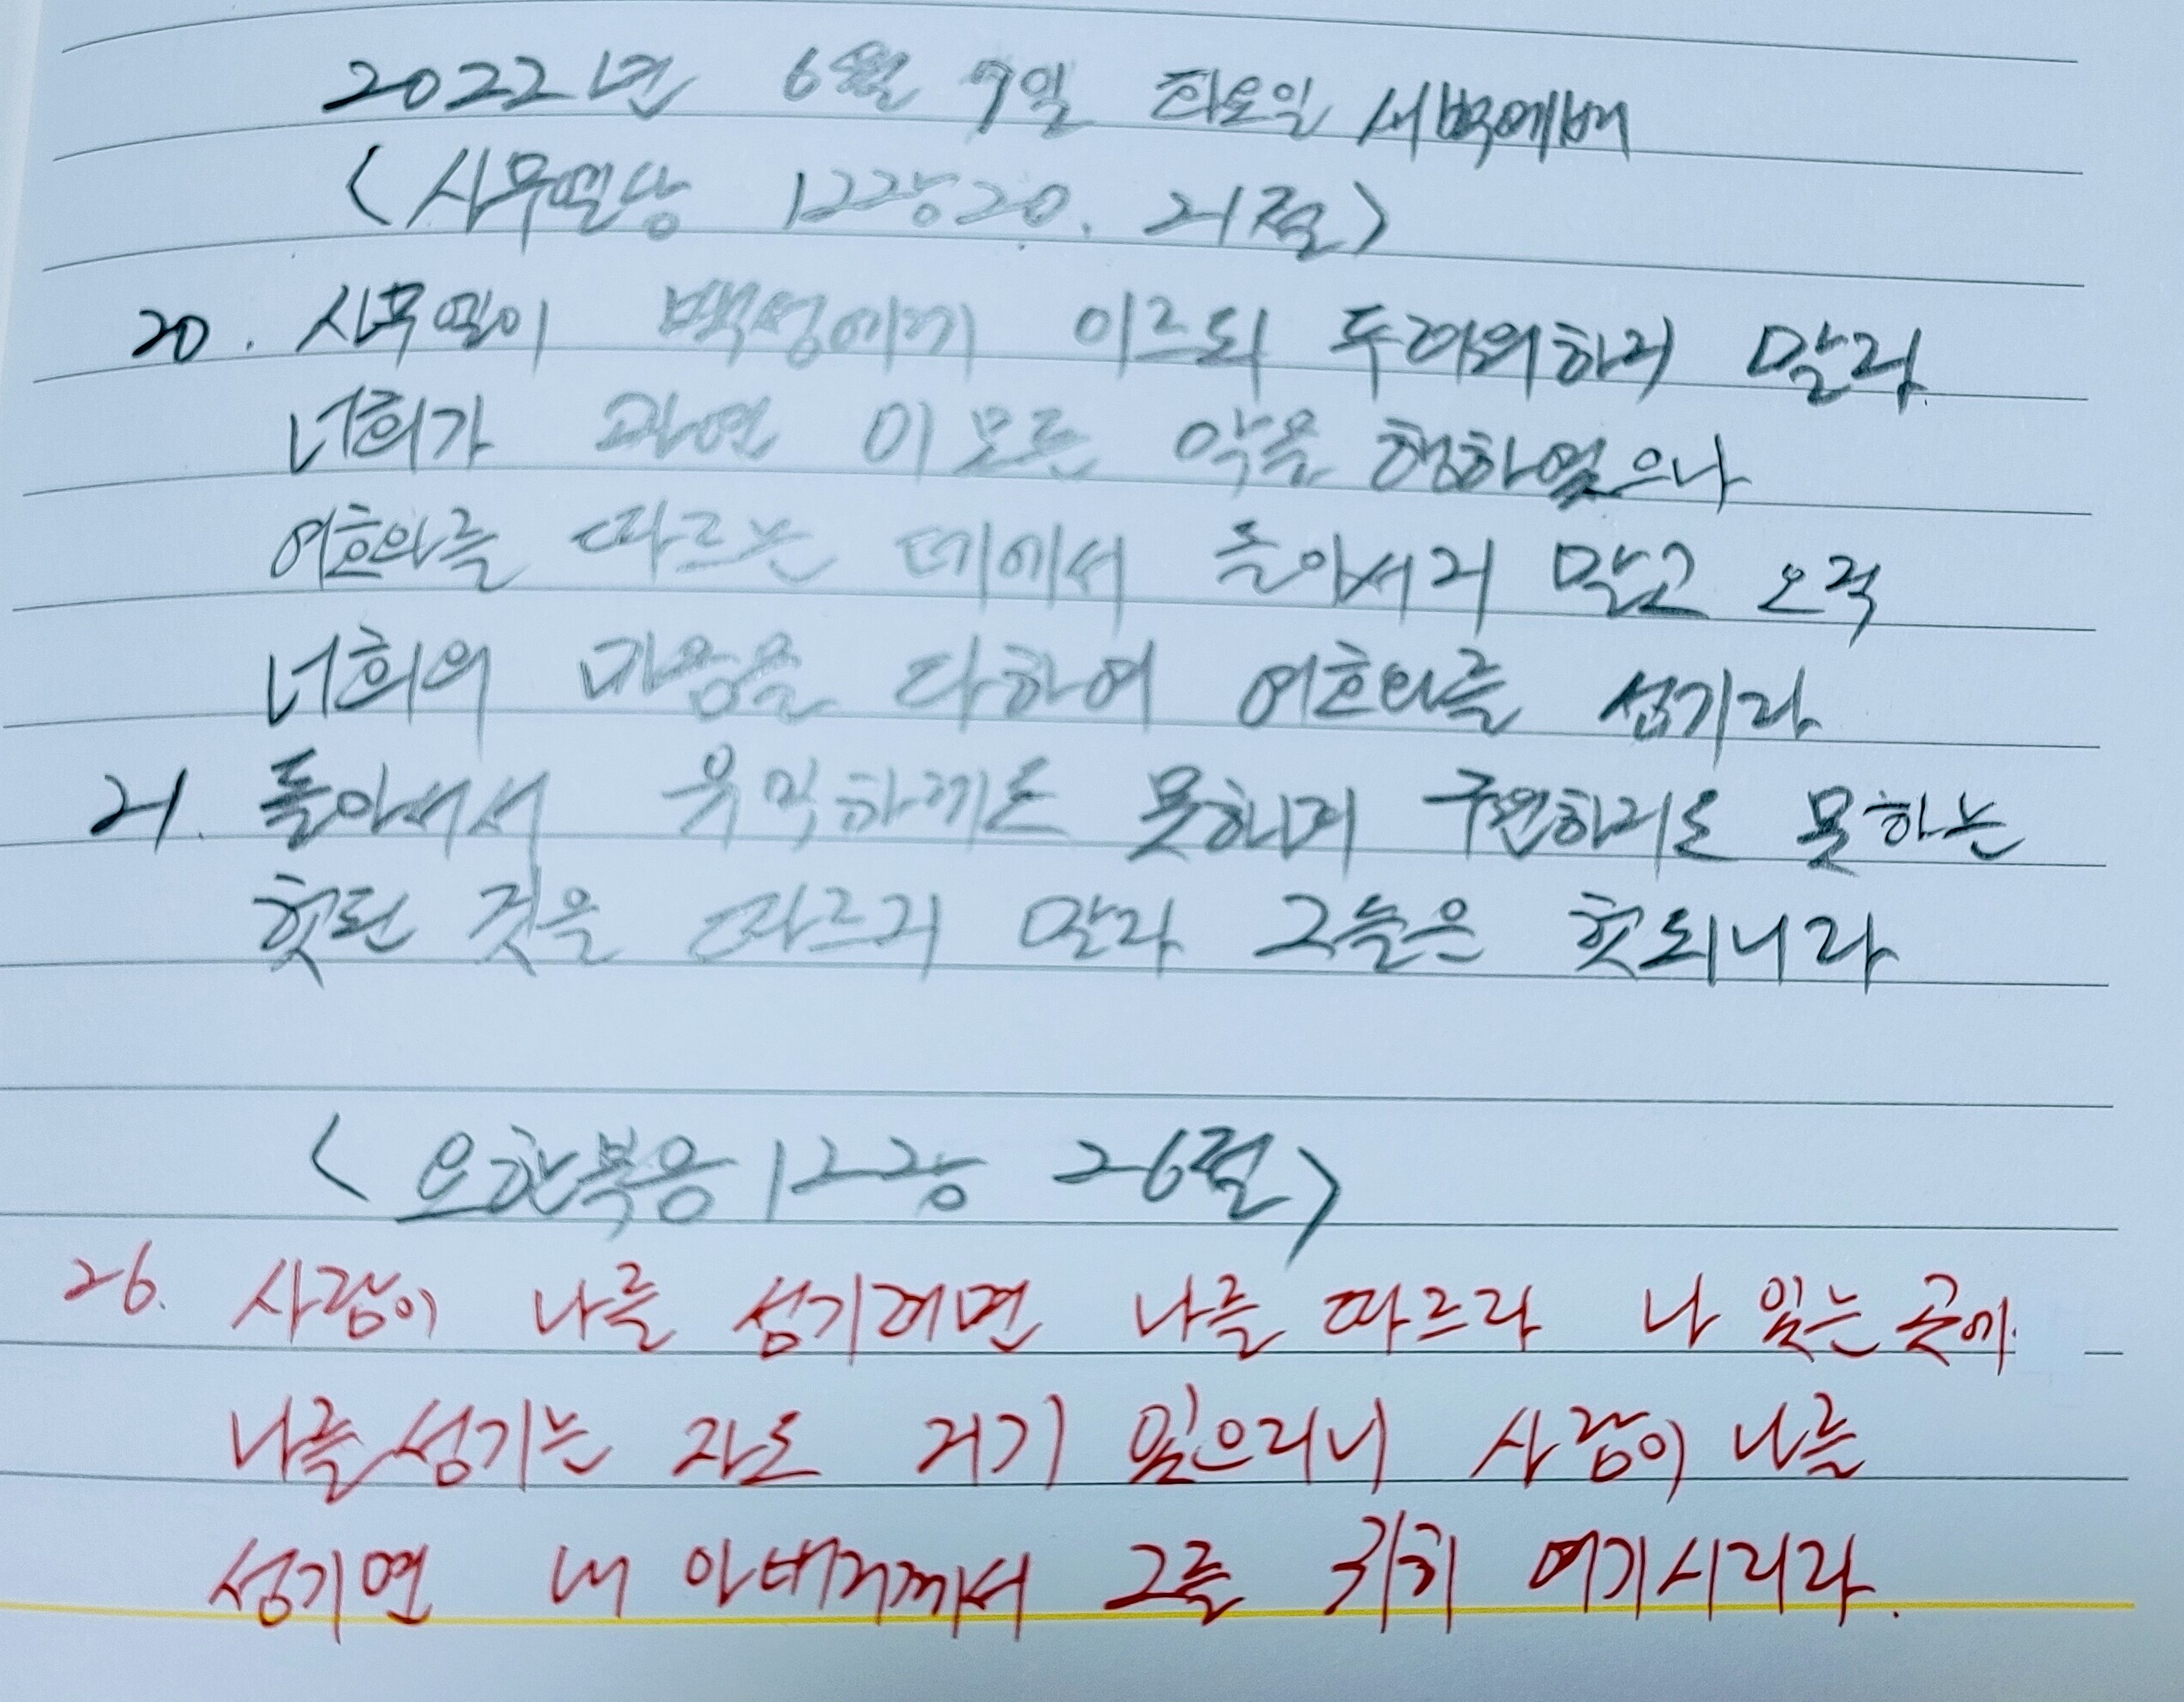 2022년 6월 7일 화요일 새벽예배
<사무엘상 12장 20. 21절>
20. 사무엘이 백성에게 이르되 두려워하지 말라.
너희가 과연 이 모든 악을 행하였으나
여호와를 따르는 데에서 돌아서지 말고 오직
너희의 마음을 다하여 여호와를 섬기라
21. 돌아서서 유익하게도 못하며 구원하지도 못하는
헛된 것을 따르지 말라 그들은 헛되니라
<요한복음 12장 26절>
26. 사람이 나를 섬기려면 나를 따르라 나 있는 곳에
나를 섬기는 자도 거기 있으리니 사람이 나를
섬기면 내 아버지께서 그를 귀히 여기시리라.